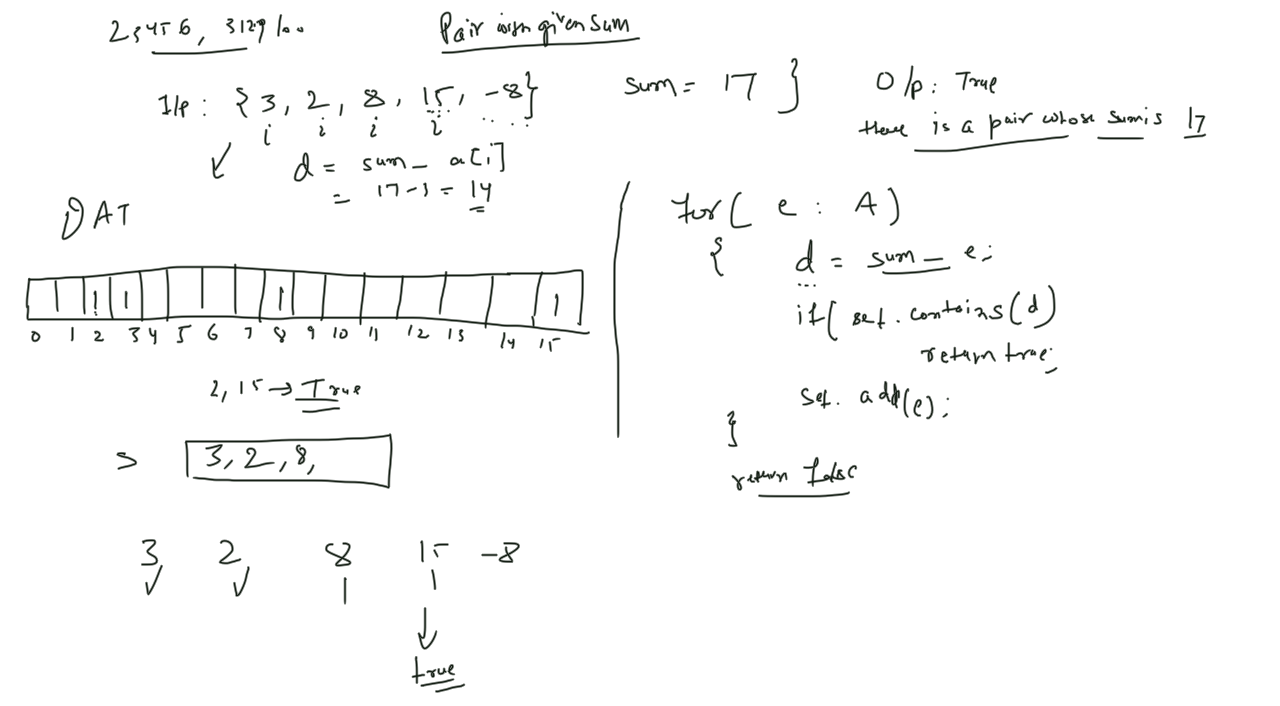 23456, 3129100
Pair with given sum
I/p : { 3, 2, 8, 15, -8 }
sum = 17 }
O/p : True
there is a pair whose sum is 17
i i i i
d = sum - a[i]
= 17-3 = 14
DAT
1 1 1 1
0 1 2 3 4 5 6 7 8 9 10 11 12 13 14 15
2, 15 → True
S 3, 2, 8,
3 2 8 15 -8
true
for( e : A )
{ d = sum - e;
if( set.contains(d)
return true;
set.add(e);
}
return false